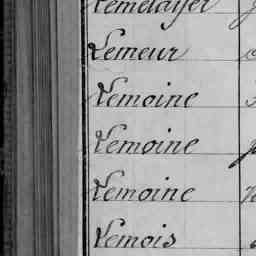 Lemeur
Lemoine
Lemoine
Lemoine
Lemois